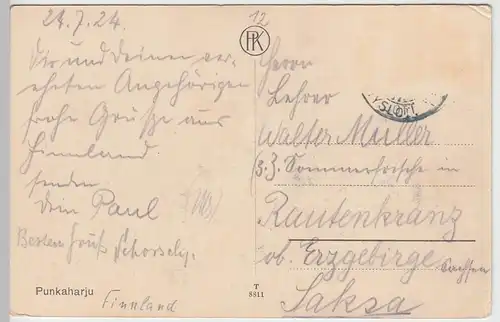 24.7.24.
12
PK
Dir und deinen ver-
ehrten Angehörigen
frohe Grüsze aus
Finnland
senden
Dein Paul
Besten Gruß
Punkaharju
Finnland
T
8811
Herrn
Lehrer
Walter Müller
(z. Z. Sommerfrische in
Rautenkranz
ob. Erzgebirge
Sachsen
Saksa